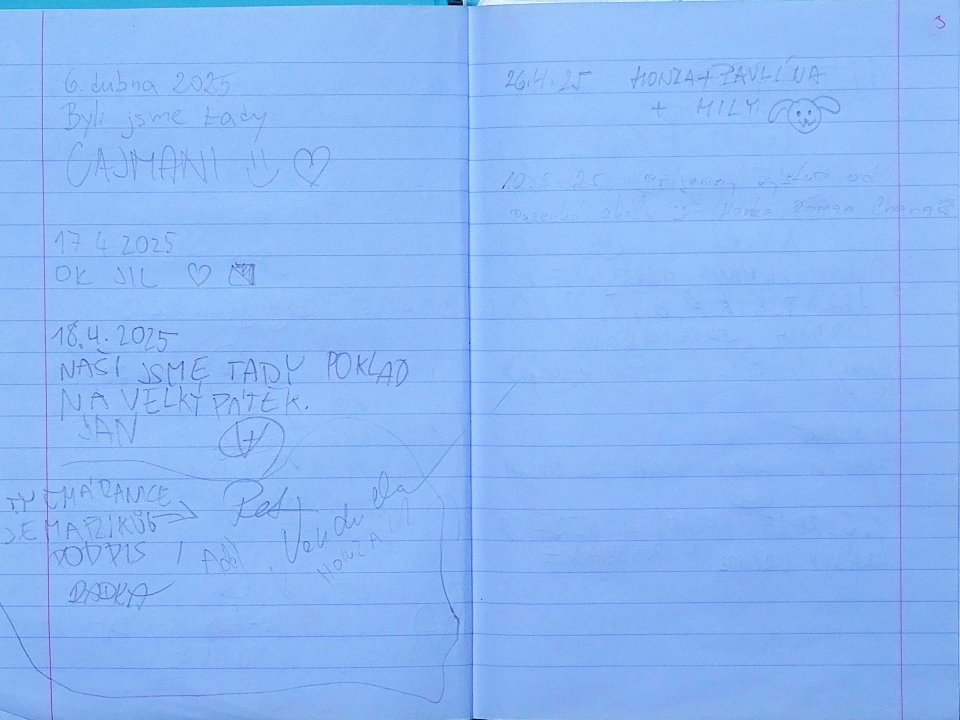 6. dubna 2025
Byli jsme tady
ČAJMANI
17 4 2025
OK JIL
18.4.2025
NAŠI JSME TADY POKLAD
NA VELKÝ PÁTEK.
JAN
TY ČMÁRANICE
JE MAZÍKŮV
PODPIS
Vendula
HONZA
RADKA
3
26.4.25 HONZA + PAVLÍNA
+ MILY
10.5 25 příjemný výstup od
Honza Roman